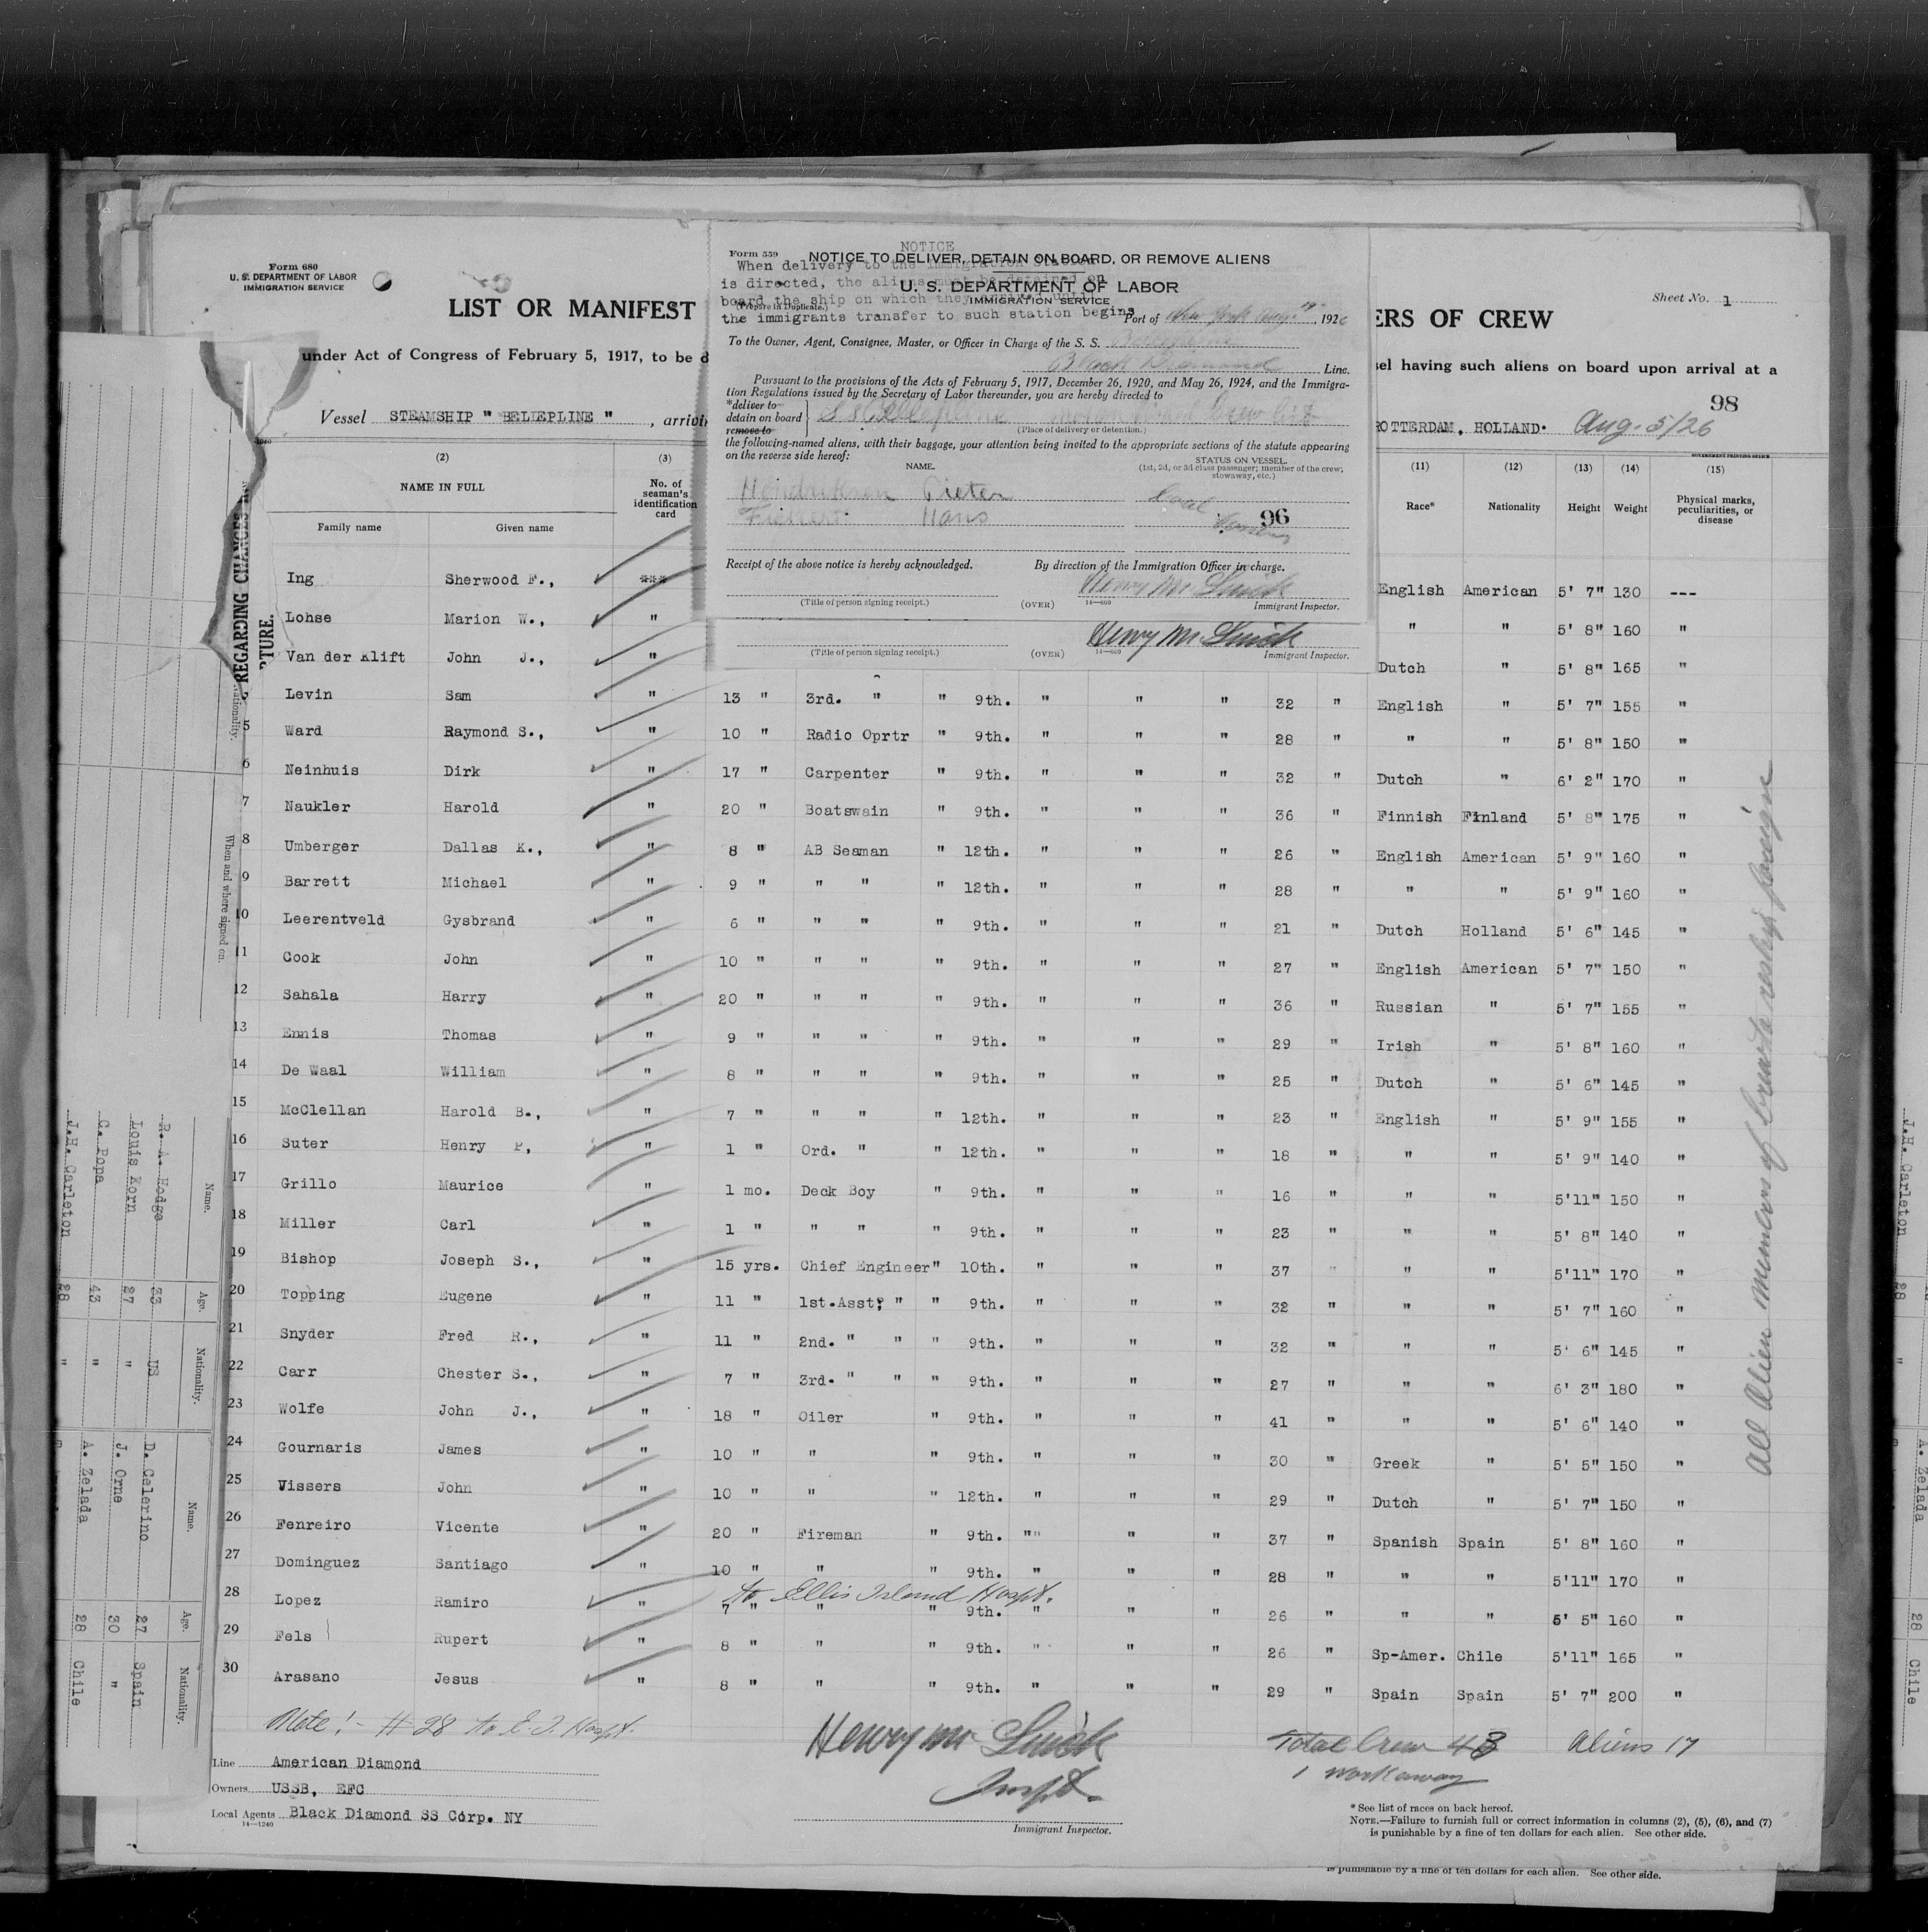 Form 680
U. S. DEPARTMENT OF LABOR
IMMIGRATION SERVICE
LIST OR MANIFEST
ERS OF CREW
Sheet No. 1
under Act of Congress of February 5, 1917, to be d
sel having such aliens on board upon arrival at a
98
Vessel STEAMSHIP " BELLEPLINE ", arrivin
ROTTERDAM, HOLLAND. Aug. 5/26
Form 559
NOTICE
NOTICE TO DELIVER, DETAIN ON BOARD, OR REMOVE ALIENS
When delivery to the Immigration Station
is directed, the aliens must be detained on
board the ship on which they arrived until
the immigrants transfer to such station begins
U. S. DEPARTMENT OF LABOR
IMMIGRATION SERVICE
(Prepare in Duplicate.)
Port of New York Aug , 1926
To the Owner, Agent, Consignee, Master, or Officer in Charge of the S. S.
Black Diamond Line.
Pursuant to the provisions of the Acts of February 5, 1917, December 26, 1920, and May 26, 1924, and the Immigra-
tion Regulations issued by the Secretary of Labor thereunder, you are hereby directed to
*deliver to
detain on board
remove to
S.S. Bellepline crew list
(Place of delivery or detention.)
the following-named aliens, with their baggage, your attention being invited to the appropriate sections of the statute appearing
on the reverse side hereof:
NAME.
STATUS ON VESSEL.
(1st, 2d, or 3d class passenger; member of the crew; stowaway, etc.)
Hendriksen Pieter Coal
Hans Passers
96
Receipt of the above notice is hereby acknowledged.
By direction of the Immigration Officer in charge.
Henry M. Quick
(Title of person signing receipt.) (OVER) 14—660 Immigrant Inspector.
Henry M. Quick
(Title of person signing receipt.) (OVER) 14—660 Immigrant Inspector.
(2) (3) (11) (12) (13) (14) (15)
NAME IN FULL
Family name Given name
No. of seaman's identification card
Race* Nationality Height Weight Physical marks, peculiarities, or disease
GOVERNMENT PRINTING OFFICE
Ing Sherwood F., *** English American 5' 7" 130 ---
Lohse Marion W., " " " 5' 8" 160 "
Van der Klift John J., " Dutch " 5' 8" 165 "
Levin Sam " 13 " 3rd. " " 9th. " " " 32 " English " 5' 7" 155 "
5 Ward Raymond S., " 10 " Radio Oprtr " 9th. " " " 28 " " " 5' 8" 150 "
6 Neinhuis Dirk " 17 " Carpenter " 9th. " " " 32 " Dutch " 6' 2" 170 "
7 Naukler Harold " 20 " Boatswain " 9th. " " " 36 " Finnish Finland 5' 8" 175 "
8 Umberger Dallas K., " 8 " AB Seaman " 12th. " " " 26 " English American 5' 9" 160 "
9 Barrett Michael " 9 " " " " 12th. " " " 28 " " " 5' 9" 160 "
10 Leerentveld Gysbrand " 6 " " " " 9th. " " " 21 " Dutch Holland 5' 6" 145 "
11 Cook John " 10 " " " " 9th. " " " 27 " English American 5' 7" 150 "
12 Sahala Harry " 20 " " " " 9th. " " " 36 " Russian " 5' 7" 155 "
13 Ennis Thomas " 9 " " " " 9th. " " " 29 " Irish " 5' 8" 160 "
14 De Waal William " 8 " " " " 9th. " " " 25 " Dutch " 5' 6" 145 "
15 McClellan Harold B., " 7 " " " " 12th. " " " 23 " English " 5' 9" 155 "
16 Suter Henry P, " 1 " Ord. " " 12th. " " " 18 " " " 5' 9" 140 "
17 Grillo Maurice " 1 mo. Deck Boy " 9th. " " " 16 " " " 5'11" 150 "
18 Miller Carl " 1 " " " " 9th. " " " 23 " " " 5' 8" 140 "
19 Bishop Joseph S., " 15 yrs. Chief Engineer " 10th. " " " 37 " " " 5'11" 170 "
20 Topping Eugene " 11 " 1st.Asst; " " 9th. " " " 32 " " " 5' 7" 160 "
21 Snyder Fred R., " 11 " 2nd. " " " 9th. " " " 32 " " " 5' 6" 145 "
22 Carr Chester S., " 7 " 3rd. " " " 9th. " " " 27 " " " 6' 3" 180 "
23 Wolfe John J., " 18 " Oiler " 9th. " " " 41 " " " 5' 6" 140 "
24 Gournaris James " 10 " " " 9th. " " " 30 " Greek " 5' 5" 150 "
25 Vissers John " 10 " " " 12th. " " " 29 " Dutch " 5' 7" 150 "
26 Fenreiro Vicente " 20 " Fireman " 9th. "" " " 37 " Spanish Spain 5' 8" 160 "
27 Dominguez Santiago " 10 " " " 9th. " " " 28 " " " 5'11" 170 "
to Ellis Island Hospt.
28 Lopez Ramiro " 7 " " " 9th. " " " 26 " " " 5' 5" 160 "
29 Fels Rupert " 8 " " " 9th. " " " 26 " Sp-Amer. Chile 5'11" 165 "
30 Arasano Jesus " 8 " " " 9th. " " " 29 " Spain Spain 5' 7" 200 "
All Alien members of Crew to reship foreign
Note! - #28 to E. I. Hospt.
Henry M. Quick
Inspt.
Immigrant Inspector.
Total Crew 43 Aliens 17
1 workaway
Line American Diamond
Owners USSB, EFC
Local Agents Black Diamond SS Corp. NY
14—1240
* See list of races on back hereof.
NOTE.—Failure to furnish full or correct information in columns (2), (5), (6), and (7)
is punishable by a fine of ten dollars for each alien. See other side.
is punishable by a fine of ten dollars for each alien. See other side.
REGARDING CHANGES
RTURE.
Nationality.
When and where signed on.
Name. Age. Nationality. Name. Age. Nationality.
R. A. Hodge 33 US D. Celerino 27 Spain
Louis Korn 27 " J. Orne 30 "
C. Popa 43 " A. Zelada 28 Chile
J.H. Carleton 28 "
J.H. Carleton 28 " A. Zelada 28 Chile